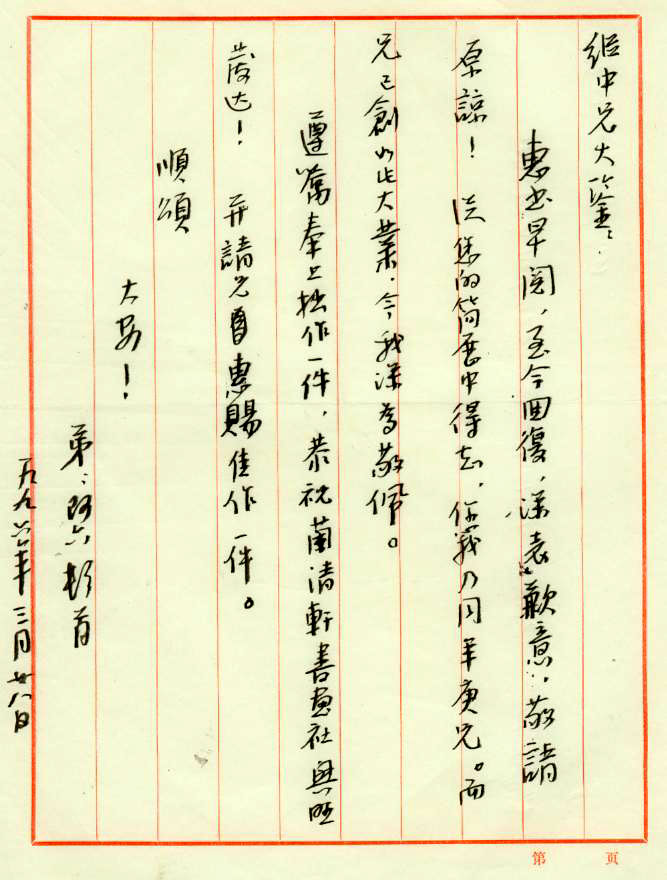 绍中兄大鉴：
惠书早阅，至今回復，深表歉意，敬請
原諒！從您的简历中得知，你我乃同年庚兄。而
兄已創如此大業，令我深為敬佩。
遵嘱奉上拙作一件，恭祝蘭清軒書画社興旺
發达！并請兄惠賜佳作一件。
順頌
大安！
弟：阿六顿首
一九九六年三月廿八日
第 页